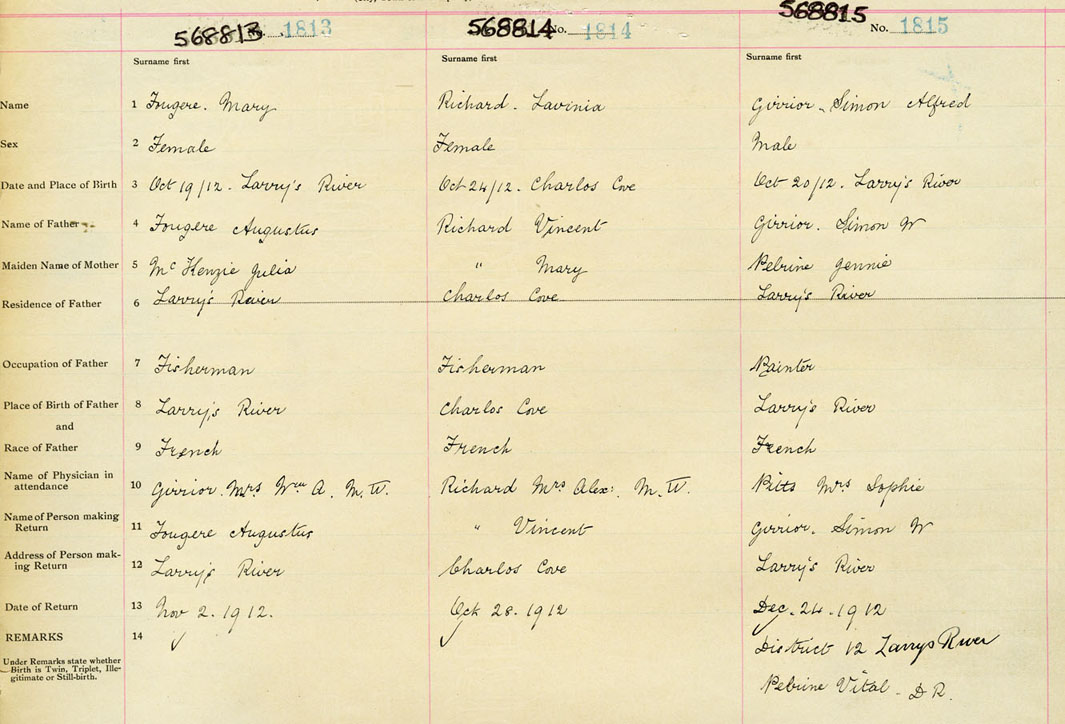 568813 No. 1813 568814 No. 1814 568815 No. 1815
Surname first Surname first Surname first
Name 1 Fougere. Mary Richard. Lavinia Girrior. Simon Alfred
Sex 2 Female Female Male
Date and Place of Birth 3 Oct 19/12. Larry's River Oct 24/12. Charlos Cove Oct 20/12. Larry's River
Name of Father 4 Fougere Augustus Richard Vincent Girrior. Simon W
Maiden Name of Mother 5 McKenzie Julia " Mary Pelrine Jennie
Residence of Father 6 Larry's River Charlos Cove Larry's River
Occupation of Father 7 Fisherman Fisherman Painter
Place of Birth of Father 8 Larry's River Charlos Cove Larry's River
and
Race of Father 9 French French French
Name of Physician in
attendance 10 Girrior. Mrs Wm A. M.W. Richard Mrs Alex: M.W. Pitts Mrs Sophie
Name of Person making
Return 11 Fougere Augustus " Vincent Girrior. Simon W
Address of Person mak-
ing Return 12 Larry's River Charlos Cove Larry's River
Date of Return 13 Nov 2. 1912. Oct 28. 1912 Dec. 24. 1912
REMARKS 14 District 12 Larrys River
Under Remarks state whether
Birth is Twin, Triplet, Ille-
gitimate or Still-birth.
Pelrine Vital - D R.